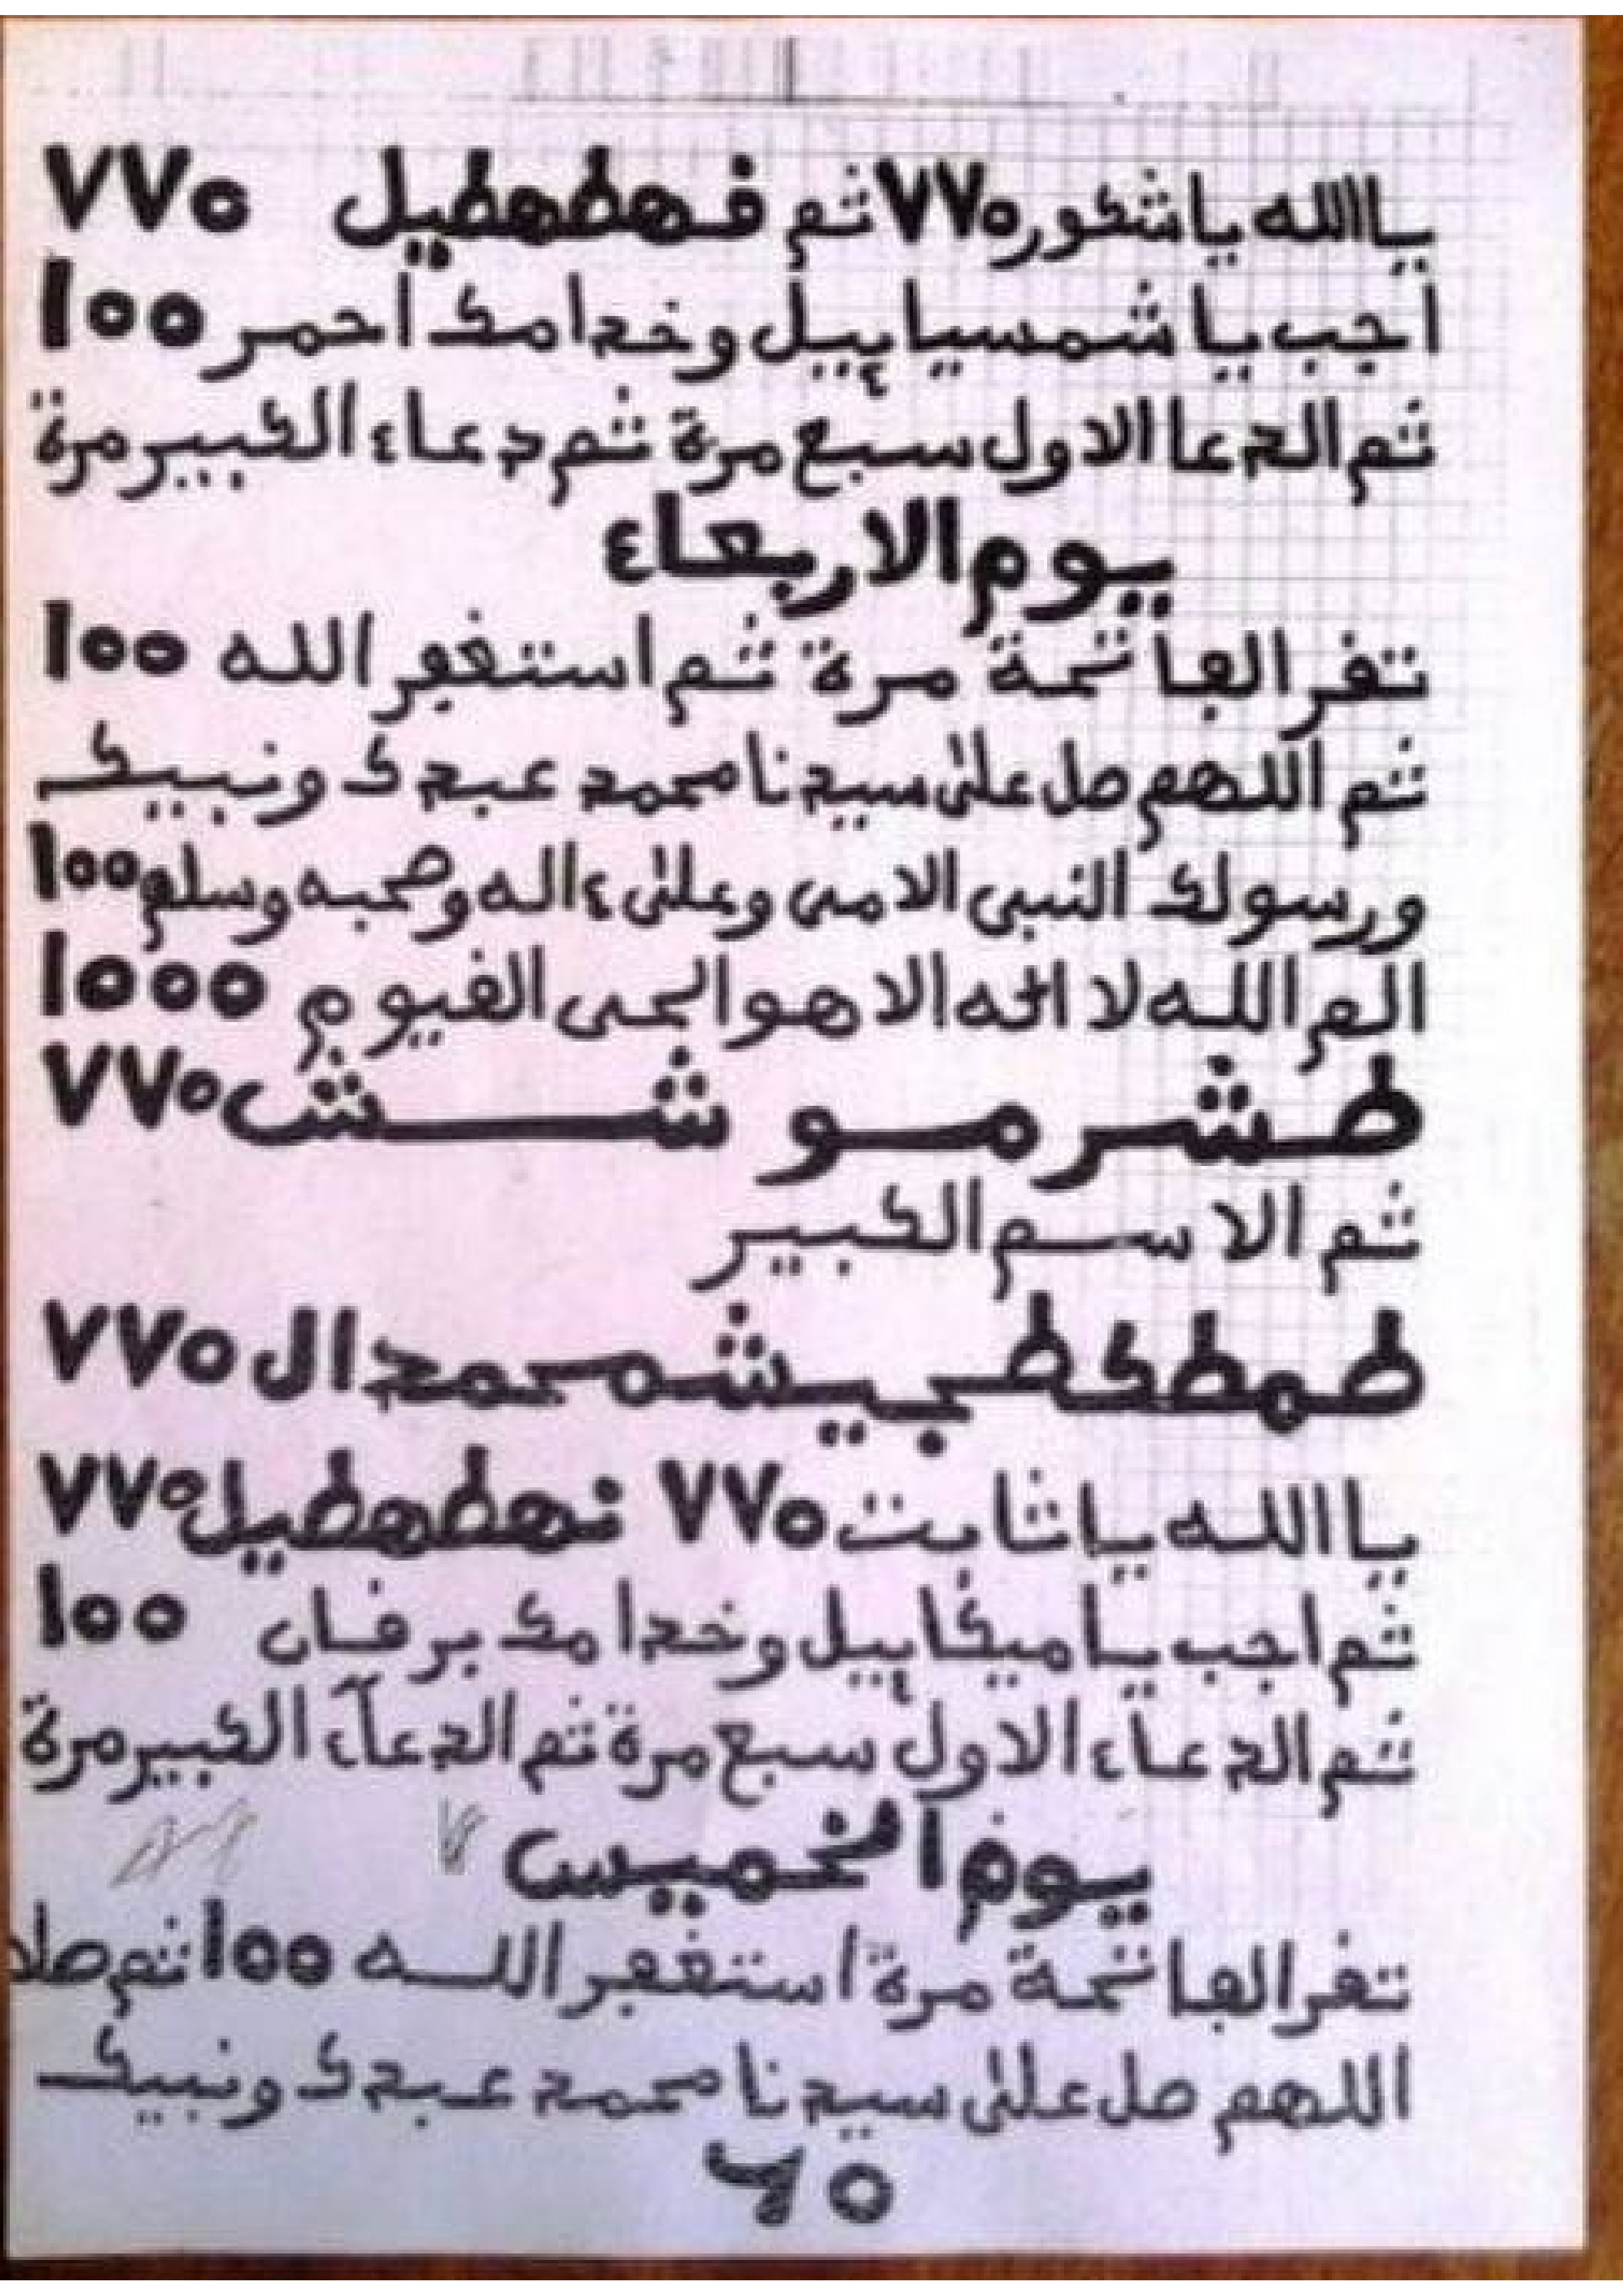 ياالله ياشكور ٧٧٥ ثم فهطهطيل ٧٧٥
اجب يا شمسياييل وخدامك احمر ١٥٥
ثم الدعا الاول سبع مرة ثم دعاء الكبير مرة
يوم الاربعاء
تفرا الفاتحة مرة ثم استغفر الله ١٥٥
ثم اللهم صل على سيدنا محمد عبدك ونبيك
ورسولك النبي الامى وعلى ءاله وصحبه وسلم ١٥٥
الم الله لا اله الا هو الحى الفيوم ١٥٥٥
طشرمو شش ٧٧٥
ثم الا سم الكبير
طمطكطبيشمحمدال ٧٧٥
يا الله يا ثابت ٧٧٥ نهطهطيل ٧٧٥
ثم اجب يا ميكاييل وخدامك برفان ١٥٥
ثم الدعاء الاول سبع مرة ثم الدعاء الكبير مرة
يوم الخميس
تفرا الفاتحة مرة استغفر الله ١٥٥ ثم صلا
اللهم صل على سيدنا محمد عبدك ونبيك